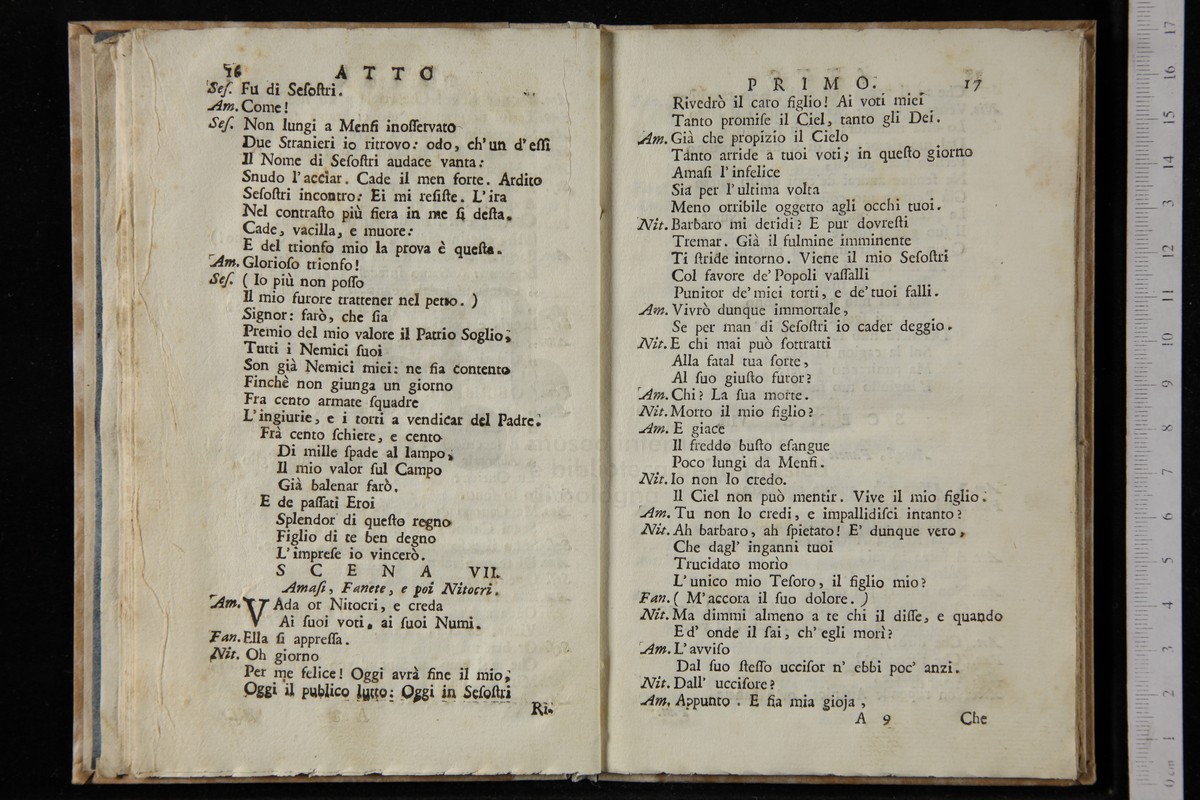 16 ATTO
Seſ. Fu di Seſoſtri.
Am. Come!
Seſ. Non lungi a Menfi inoſſervato
Due Stranieri io ritrovo: odo, ch'un d'eſſi
Il Nome di Seſoſtri audace vanta:
Snudo l'acciar. Cade il men forte. Ardito
Seſoſtri incontro: Ei mi reſiſte. L'ira
Nel contraſto più fiera in me ſi deſta.
Cade, vacilla, e muore:
E del trionfo mio la prova è queſta.
Am. Glorioſo trionfo!
Seſ. ( Io più non poſſo
Il mio furore trattener nel petto. )
Signor: farò, che ſia
Premio del mio valore il Patrio Soglio;
Tutti i Nemici ſuoi
Son già Nemici miei: ne ſia contento
Finchè non giunga un giorno
Fra cento armate ſquadre
L'ingiurie, e i torti a vendicar del Padre.
Frà cento ſchiere, e cento
Di mille ſpade al lampo,
Il mio valor ſul Campo
Già balenar farò.
E de paſſati Eroi
Splendor di queſto regno
Figlio di te ben degno
L'impreſe io vincerò.
SCENA VII.
Amaſi, Fanete, e poi Nitocri.
Am. VAda or Nitocri, e creda
Ai ſuoi voti, ai ſuoi Numi.
Fan. Ella ſi appreſſa.
Nit. Oh giorno
Per me felice! Oggi avrà fine il mio,
Oggi il publico lutto: Oggi in Seſoſtri
Ri-
PRIMO. 17
Rivedrò il caro figlio! Ai voti miei
Tanto promiſe il Ciel, tanto gli Dei.
Am. Già che propizio il Cielo
Tanto arride a tuoi voti; in queſto giorno
Amaſi l'infelice
Sia per l'ultima volta
Meno orribile oggetto agli occhi tuoi.
Nit. Barbaro mi deridi? E pur dovreſti
Tremar. Già il fulmine imminente
Ti ſtride intorno. Viene il mio Seſoſtri
Col favore de' Popoli vaſſalli
Punitor de' miei torti, e de' tuoi falli.
Am. Vivrò dunque immortale,
Se per man di Seſoſtri io cader deggio.
Nit. E chi mai può ſottrarti
Alla fatal tua ſorte,
Al ſuo giuſto furor?
Am. Chi? La ſua morte.
Nit. Morto il mio figlio?
Am. E giace
Il freddo buſto eſangue
Poco lungi da Menfi.
Nit. Io non lo credo.
Il Ciel non può mentir. Vive il mio figlio.
Am. Tu non lo credi, e impallidiſci intanto?
Nit. Ah barbaro, ah ſpietato! E' dunque vero,
Che dagl' inganni tuoi
Trucidato morìo
L'unico mio Teſoro, il figlio mio?
Fan. ( M'accora il ſuo dolore. )
Nit. Ma dimmi almeno a te chi il diſſe, e quando
Ed' onde il ſai, ch'egli morì?
Am. L'avviſo
Dal ſuo ſteſſo ucciſor n' ebbi poc' anzi.
Nit. Dall' ucciſore?
Am. Appunto. E ſia mia gioja,
A 9 Che